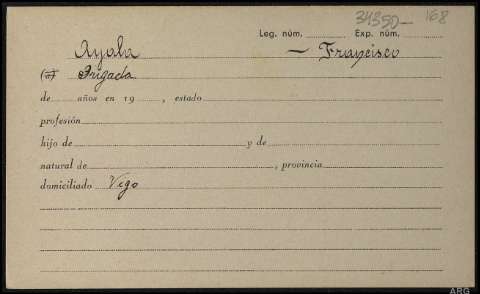 34350- 168
Leg. núm. Exp. núm.
Ayala - Francisco
(a) Brigada
de años en 19 , estado
profesión
hijo de y de
natural de , provincia
domiciliado Vigo
ARG